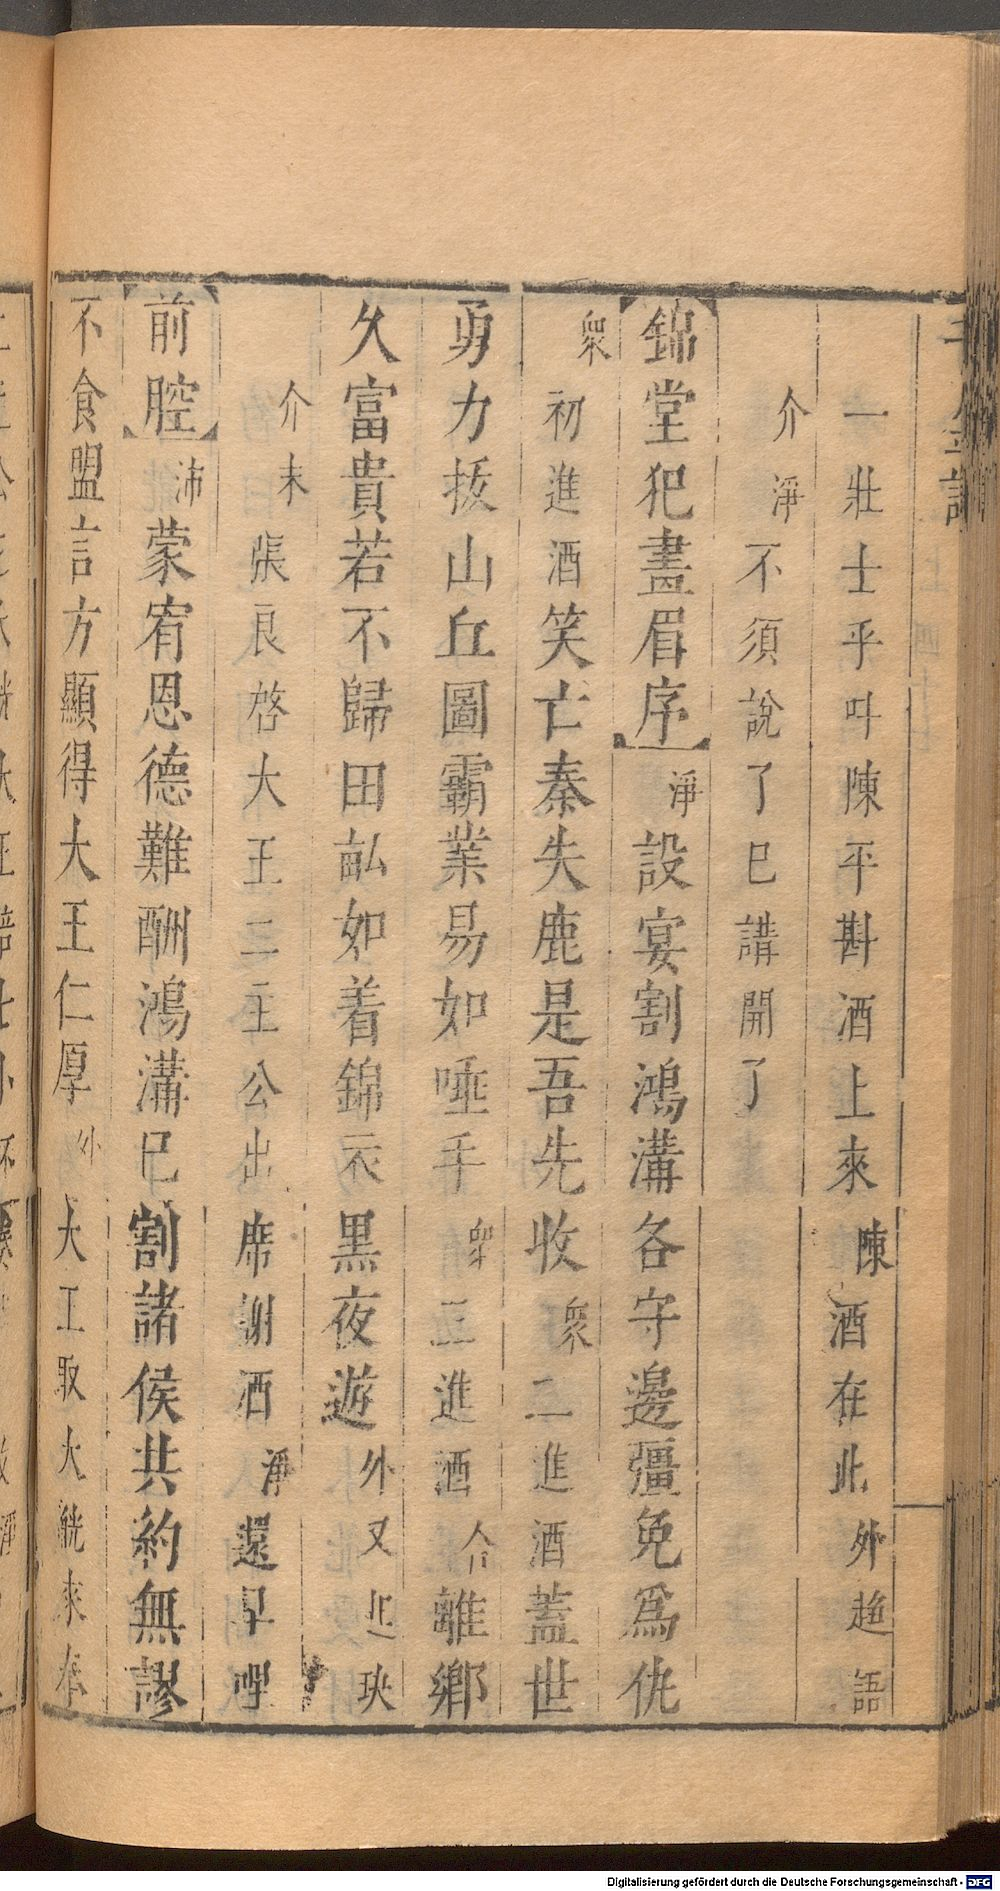 千金記
一壯士乎叫陳平斟酒上來陳酒在此外趍語
介淨不須說了已講開了
【錦堂犯畫眉序】淨設宴割鴻溝各守邊疆免爲仇
衆初進酒笑亡秦失鹿是吾先收衆二進酒蓋世
勇力拔山丘圖霸業易如唾手衆三進酒合離鄉
久富貴若不歸田畝如着錦衣黑夜遊外又起玦
介末張良啓大王二主公出席謝酒淨還早哩
【前腔】沛蒙宥恩德難酬鴻溝已割諸侯共約無謬
不食盟言方顯得大王仁厚外大王取大觥來奉
Digitalisierung gefördert durch die Deutsche Forschungsgemeinschaft - DFG